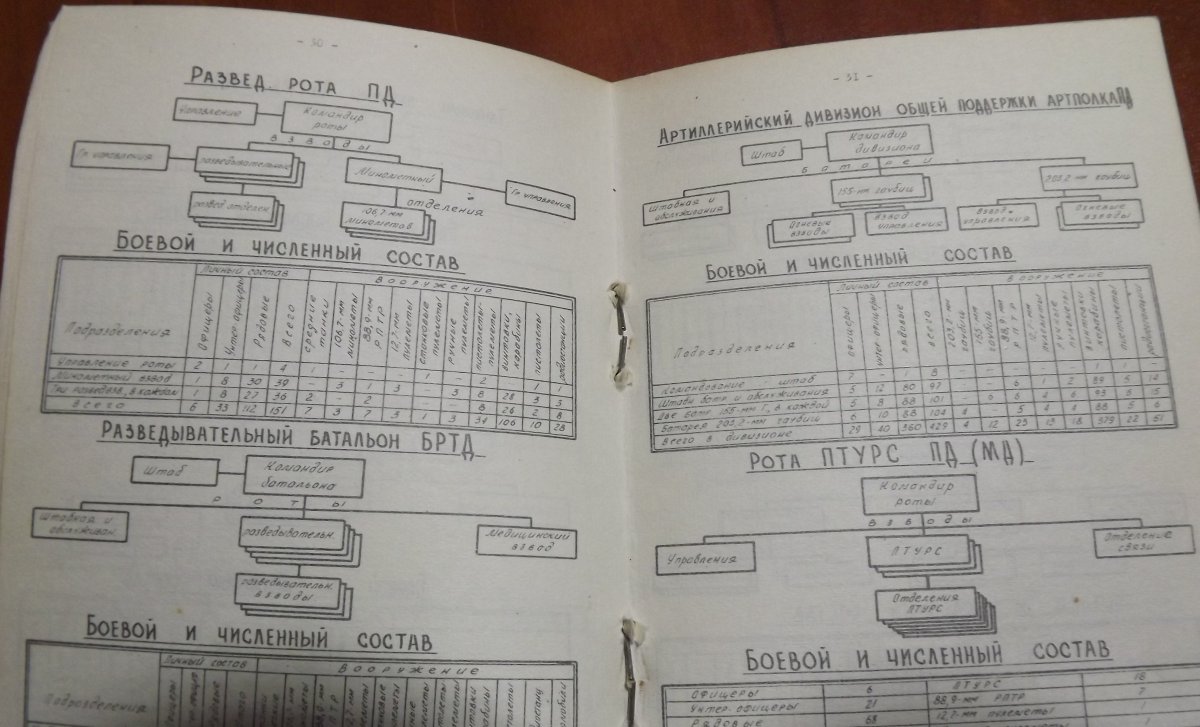 - 30 -
РАЗВЕД. РОТА ПД
Управление
Командир
роты
ВЗВОДЫ
Гр управления
разведывательные
Минометный
Гр управления
отделения
развед отделен.
106,7-мм
минометов
БОЕВОЙ И ЧИСЛЕННЫЙ СОСТАВ
Подразделения
Личный состав
Вооружение
Офицеры
Унтер офицеры
Рядовые
Всего
средние танки
106,7-мм минометы
88,9-мм РПТР
12,7-мм пулеметы
станковые пулеметы
ручные пулеметы
пистолеты-пулеметы
винтовки, карабины
пистолеты
радиостанции
Управление роты 2 1 1 4 1 - - - 1 - 2 - 1 1
Минометный взвод 1 8 30 39 - 3 1 3 - 3 8 28 3 3
Три разведвзв., в каждом 1 8 27 36 2 - 2 - - - 8 26 2 8
Всего 6 33 112 151 7 3 7 3 1 3 34 106 10 28
РАЗВЕДЫВАТЕЛЬНЫЙ БАТАЛЬОН БРТД
Штаб
Командир
батальона
РОТЫ
Штабная и
обслуживан
разведывательн.
Медицинский
взвод
разведывательн.
взводы
БОЕВОЙ И ЧИСЛЕННЫЙ СОСТАВ
Подразделения
Личный состав
Вооружение
- 31 -
АРТИЛЛЕРИЙСКИЙ ДИВИЗИОН ОБЩЕЙ ПОДДЕРЖКИ АРТПОЛКА ПД
Штаб
Командир
дивизиона
Батареи
Штабная и
обслуживания
155-мм гаубиц
203,2-мм гаубиц
Огневые
взводы
Взвод
управления
Взвод
управления
Огневые
взводы
БОЕВОЙ И ЧИСЛЕННЫЙ СОСТАВ
Подразделения
Личный состав
Вооружение
офицеры
унтер-офицеры
рядовые
всего
203,2-мм гаубиц
155 мм гаубиц
88,9-мм РПТР
12,7-мм пулеметы
ручные пулеметы
винтовки карабины
пистолеты
радиостанции
Командование - штаб 7 - 1 8 - - - - - 1 1 -
Штабн батр и обслуживания 5 12 80 97 - - 6 1 2 89 5 14
Две батр 155-мм Г, в каждой 5 8 88 101 - 6 6 4 6 93 6 15
Батарея 203,2-мм гаубиц 6 10 88 104 4 - 5 4 4 88 5 6
Всего в дивизионе 29 40 360 429 4 12 23 13 18 379 22 51
РОТА ПТУРС ПД (МД)
Командир
роты
ВЗВОДЫ
Управления
ПТУРС
Отделение
связи
Отделения
ПТУРС
БОЕВОЙ И ЧИСЛЕННЫЙ СОСТАВ
Офицеры 6 ПТУРС 18
Унтер-офицеры 21 88,9-мм РПТР 7
Рядовые 68 12,7-мм пулеметы 1